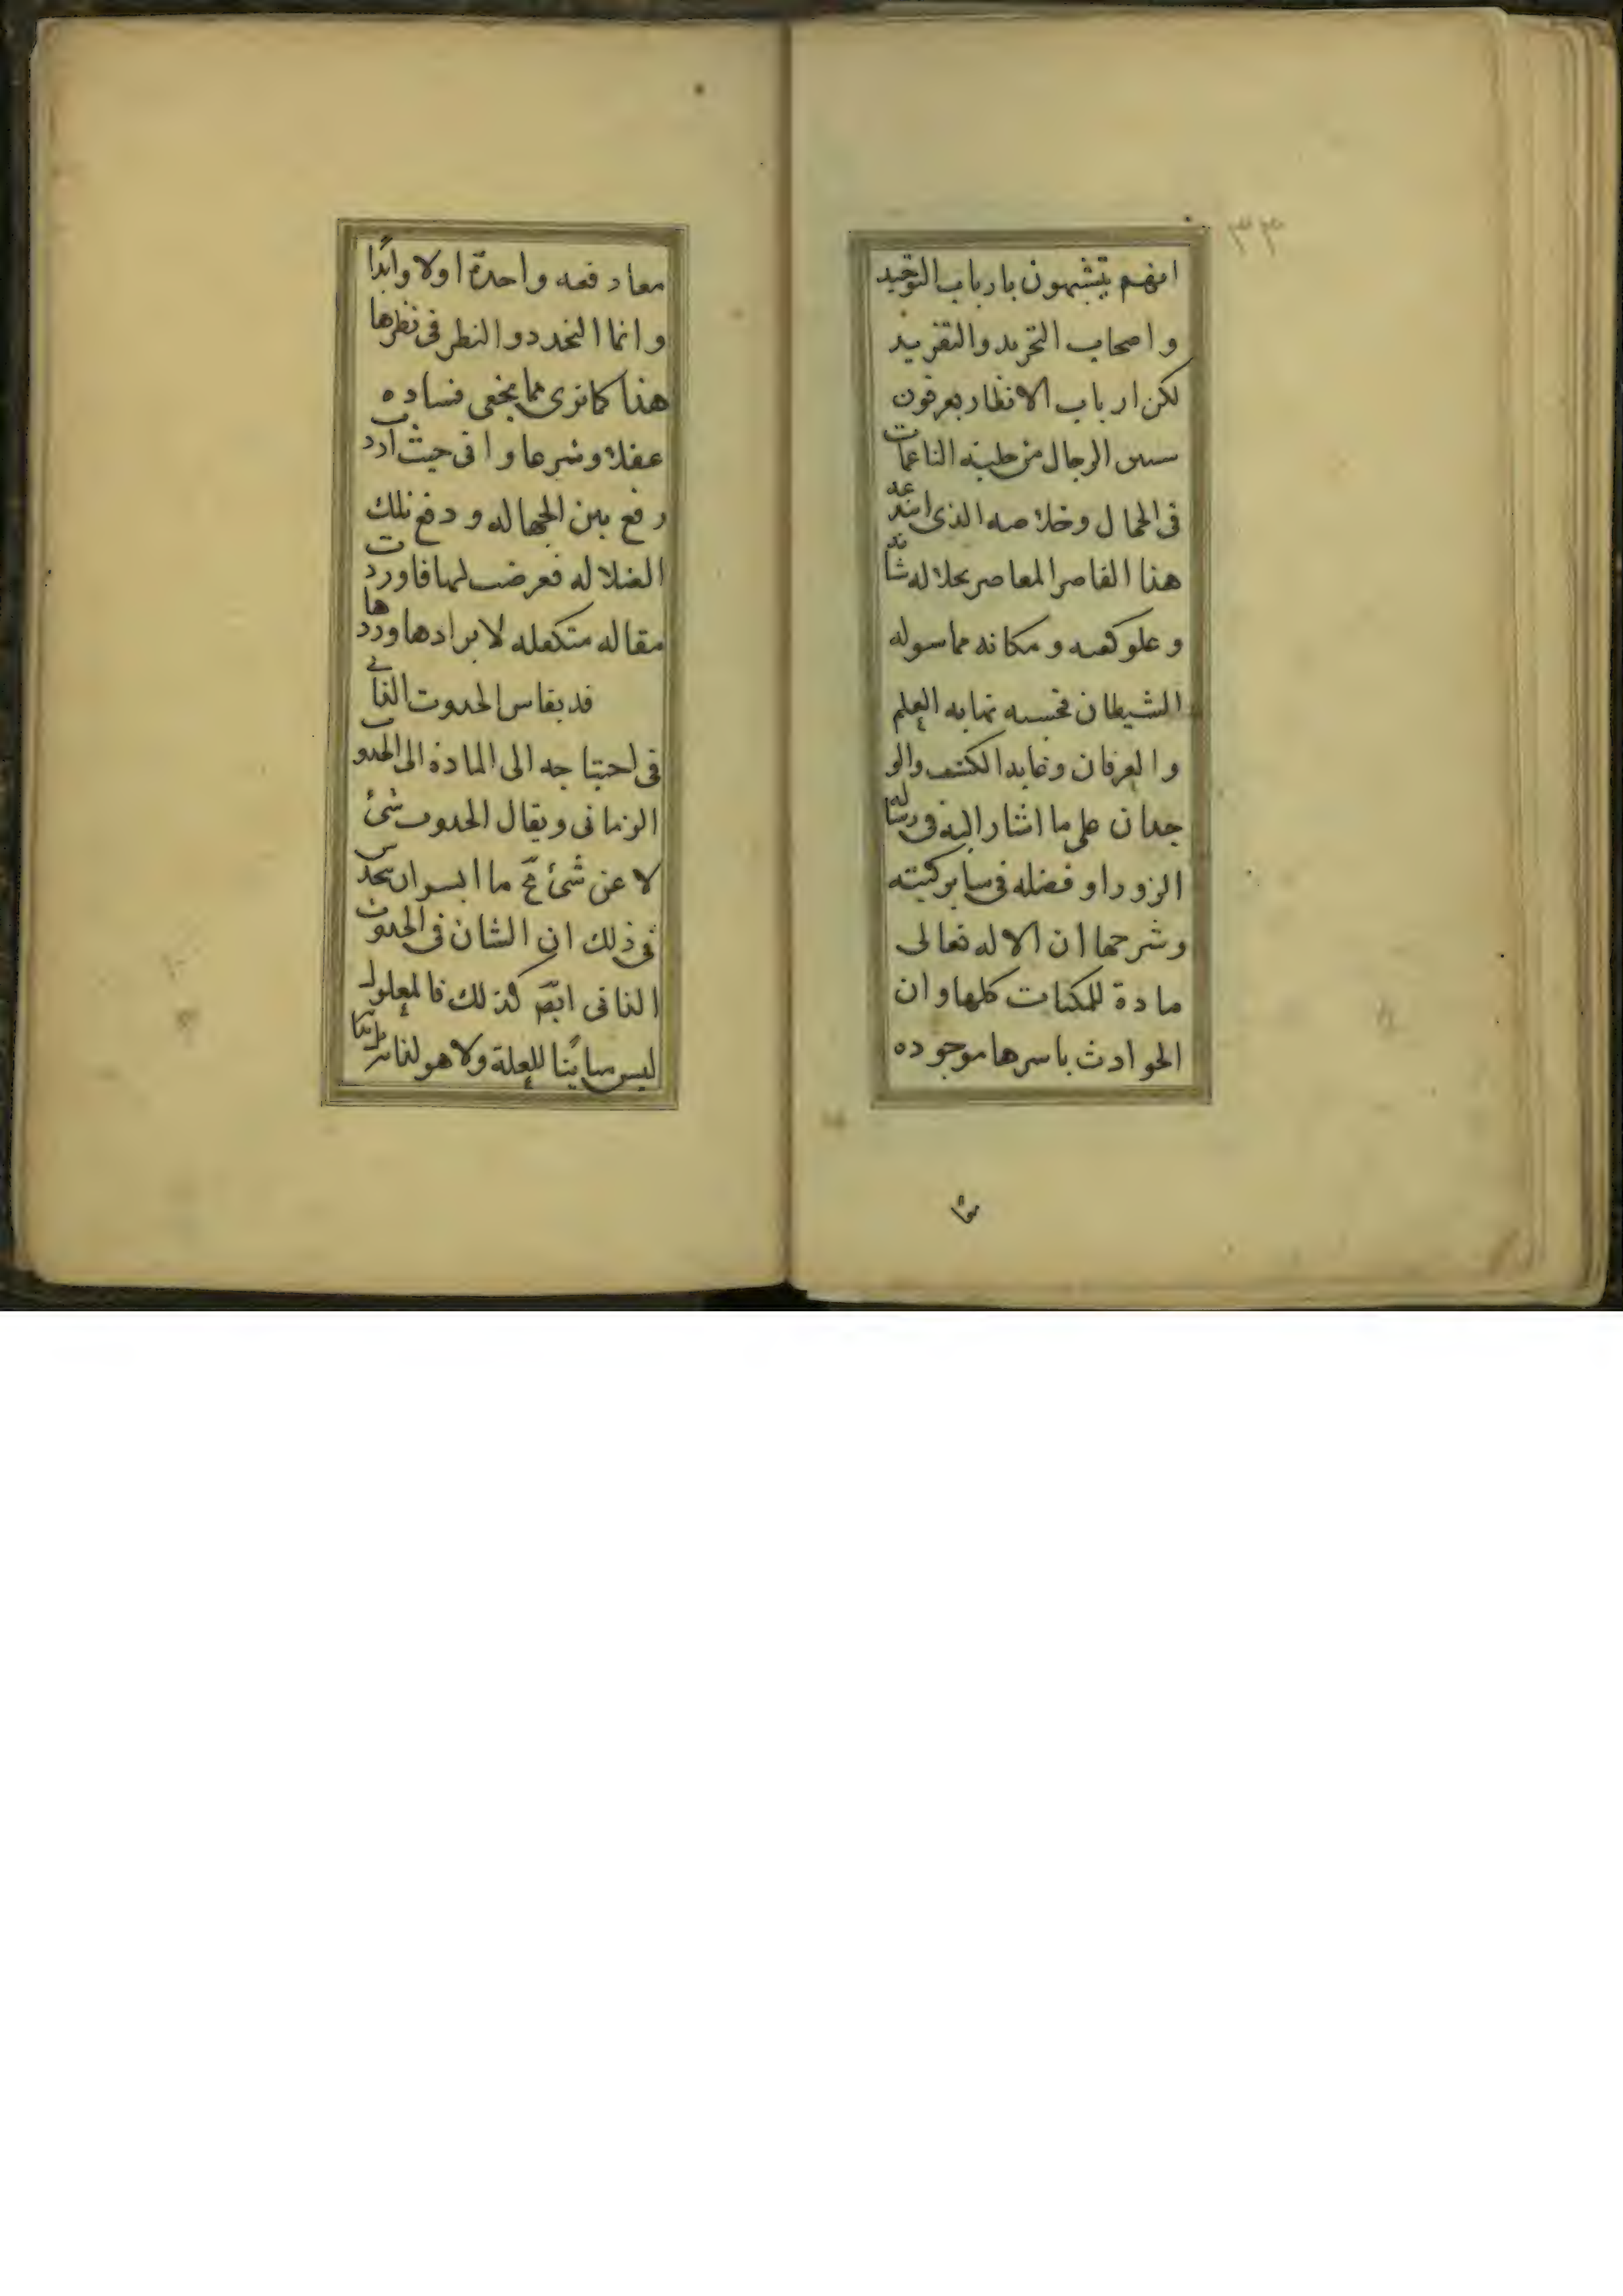 انهم يتشبهون بارباب التوحيد
واصحاب التجريد والتفريد
لكن ارباب الانظار يعرفون
الرجال من حلية الناعمات
فى الحجال وخلاصه الذى ابتدعه
هذا القاصر المعاصر بجلاله شانه
وعلو كعبه ومكانه مما سوله
الشيطان فحسبه نهايه العلم
والعرفان وغايه الكشف والو
جدان على ما اشار اليه فى رساله
الزوراو فضله فى ساير كتبه
وشرحها ان الاله تعالى
مادة للمكنات كلها وان
الحوادث باسرها موجوده
معا دفعه واحدة اولا وابدا
وانما التجدد والنظر فى نظرها
هذا كما ترى مما يخفى فساده
عقلا وشرعا وانى حيث اردت
رفع بين الجهاله ودفع تلك
الضلاله فعرضت لها فاوردت
مقاله متكفله لايرادها وردها
قد يقاس الحدوث الذاتى
فى احتياجه الى المادة الى الحدوث
الزمانى ويقال الحدوث شئ
لا عن شئ مح ما ايسر ان يحدس
فى ذلك ان الشان فى الحدوث
الذاتى ايض كذلك فالمعلول
ليس مباينا للعلة ولا هو لذاته